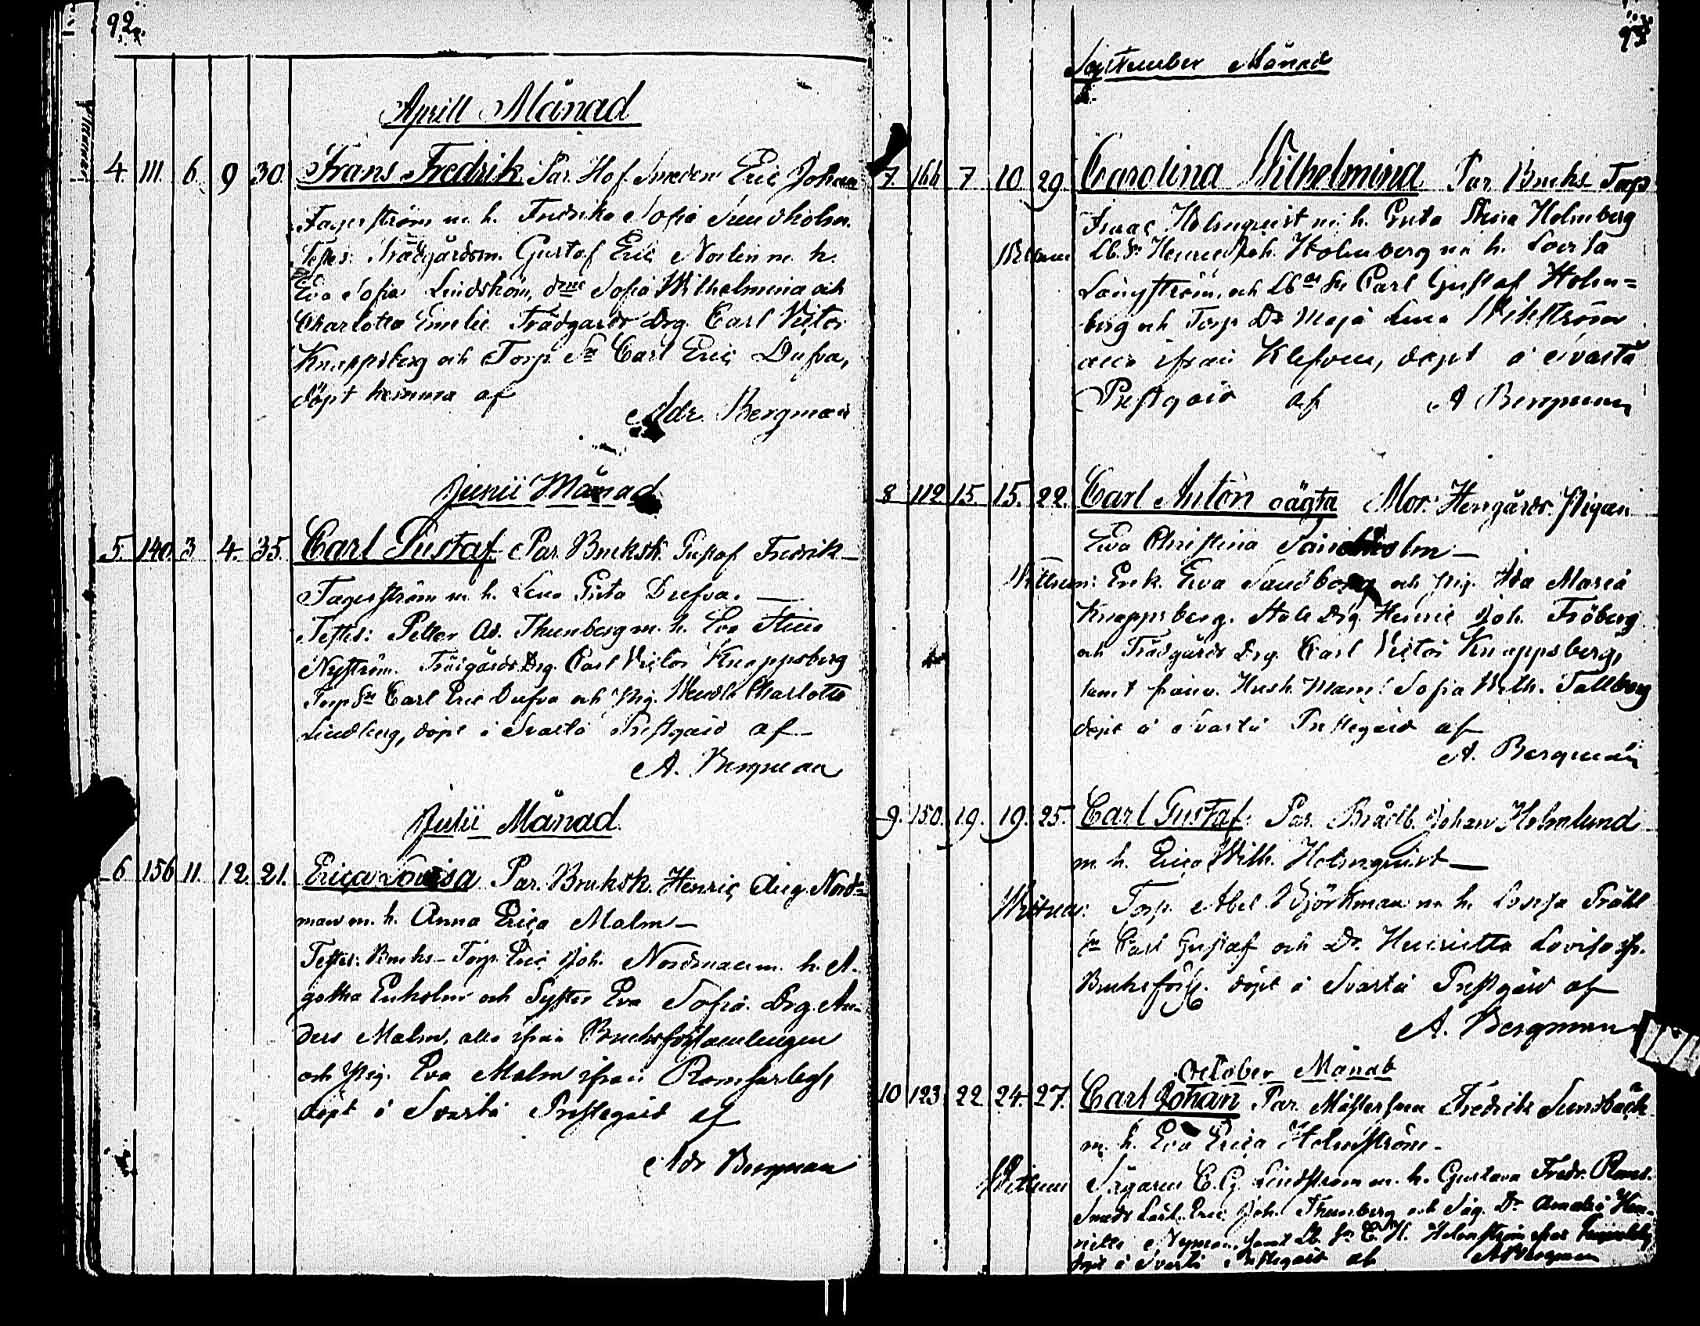 92.
Aprill Månad
4. 111 6. 9 30. Frans Fredrik Par. Hof Smeden Eric Johan
Fagerström m. h. Fredrika Sofia Sundholm.
Testes: Trädgårdsm. Gustaf Eric Norlin m. h.
Eva Sofia Lindström, Sofia Wilhelmina och
Charlotta Emelie Trädgårds Drg. Carl Victor
Knappsberg och Torp. Sn Carl Eric Dufva,
döpt hemma af
Adr. Bergman
Junii Månad
5. 140. 3 4. 35. Carl Gustaf Par. Bruksk. Gustaf Fredrik
Fagerström m. h. Lena Greta Dufva. —
Testes: Petter Ad. Thunberg m. h. Eva Stina
Nyström. Trädgårds Drg. Carl Victor Knappsberg
Torp Sn Carl Eric Dufva och Pig. Charlotta
Lindberg, döpt i Svartå Prestgård af
A. Bergman
Julii Månad
6 156 11 12. 21. Erica Lovisa Par. Bruksk. Henric Aug. Nord=
man m. h. Anna Erica Malm —
Testes: Bruks-Torp. Eric Joh. Nordman m. h. A-
gatha Enholm och Syster Eva Sofia. Drg. An-
ders Malm, alla ifrån Bruksförsamlingen
och Pig. Eva Malm ifrån
döpt i Svartå Prestegård af
Adr Bergman
93
September Månad
7. 166 7 10 29 Carolina Wilhelmina Par Bruks-Torp
Isaac Holmqvist m. h. Greta Stina Holmberg
Henric Joh. Holmberg m. h. Lovisa
Långström, och Carl Gustaf Holm=
berg och Torp. Dr Maja Lena Wikström
alla ifrån Klefven, döpt i Svartå
Prestgård af A Bergman
8 112 15. 15. 22. Carl Anton oägta Mor: Herrgårds Pigan
Eva Christina Sandholm —
Wittnen: Enk. Eva Sandberg och pig. Ida Maria
Knappsberg. Stall Drg. Henric Joh. Fröberg
och Trädgårds Drg. Carl Victor Knappsberg,
samt Sofia Wilh. Tallberg
döpt i Svartå Prestegård af
A. Bergman
9. 150. 19. 19. 25. Carl Gustaf. Par. Johan Holmlund
m. h. Erica Wilh. Holmqvist —
Wittnen: Torp. Abel Björkman m h. Lovisa
Sn Carl Gustaf och Dr. Henrietta Lovisa
Bruksförs. döpt i Svartå Prestgård af
A. Bergman
October Månad
10 123 22 24 27. Carl Johan Par. Mästersven Fredrik Sundbäck
m. h. Eva Erica Holmström —
Wittnen Sågaren C. G. Lindström m. h. Gustava Fredr.
Smeds Eric Joh. Thunberg och Såg. Dr Amalia Hen-
rietta Nyman, samt C. H. Holmström
döpt i Svartå Prestegård af A Bergman